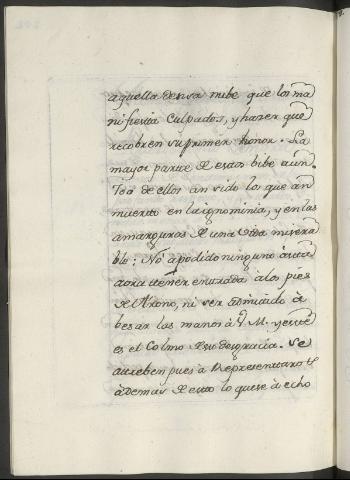 aquella densa nube que los ma
nifiesta Culpados, y hacer que
recobren su primer honor. La
mayor parte de estos bibe aun.
Tso de ellos an sido los que an
muerto en la ignominia, y en las
amarguras de una vida misera
ble: No a podido ninguno asta
aora tener entrada a los pies
de el trono, ni ser admitido à
besar las manos à V. M. y este
es el Colmo de su desgracia. Se
atreben pues à Representaros
àdemas de esto lo que se à echo